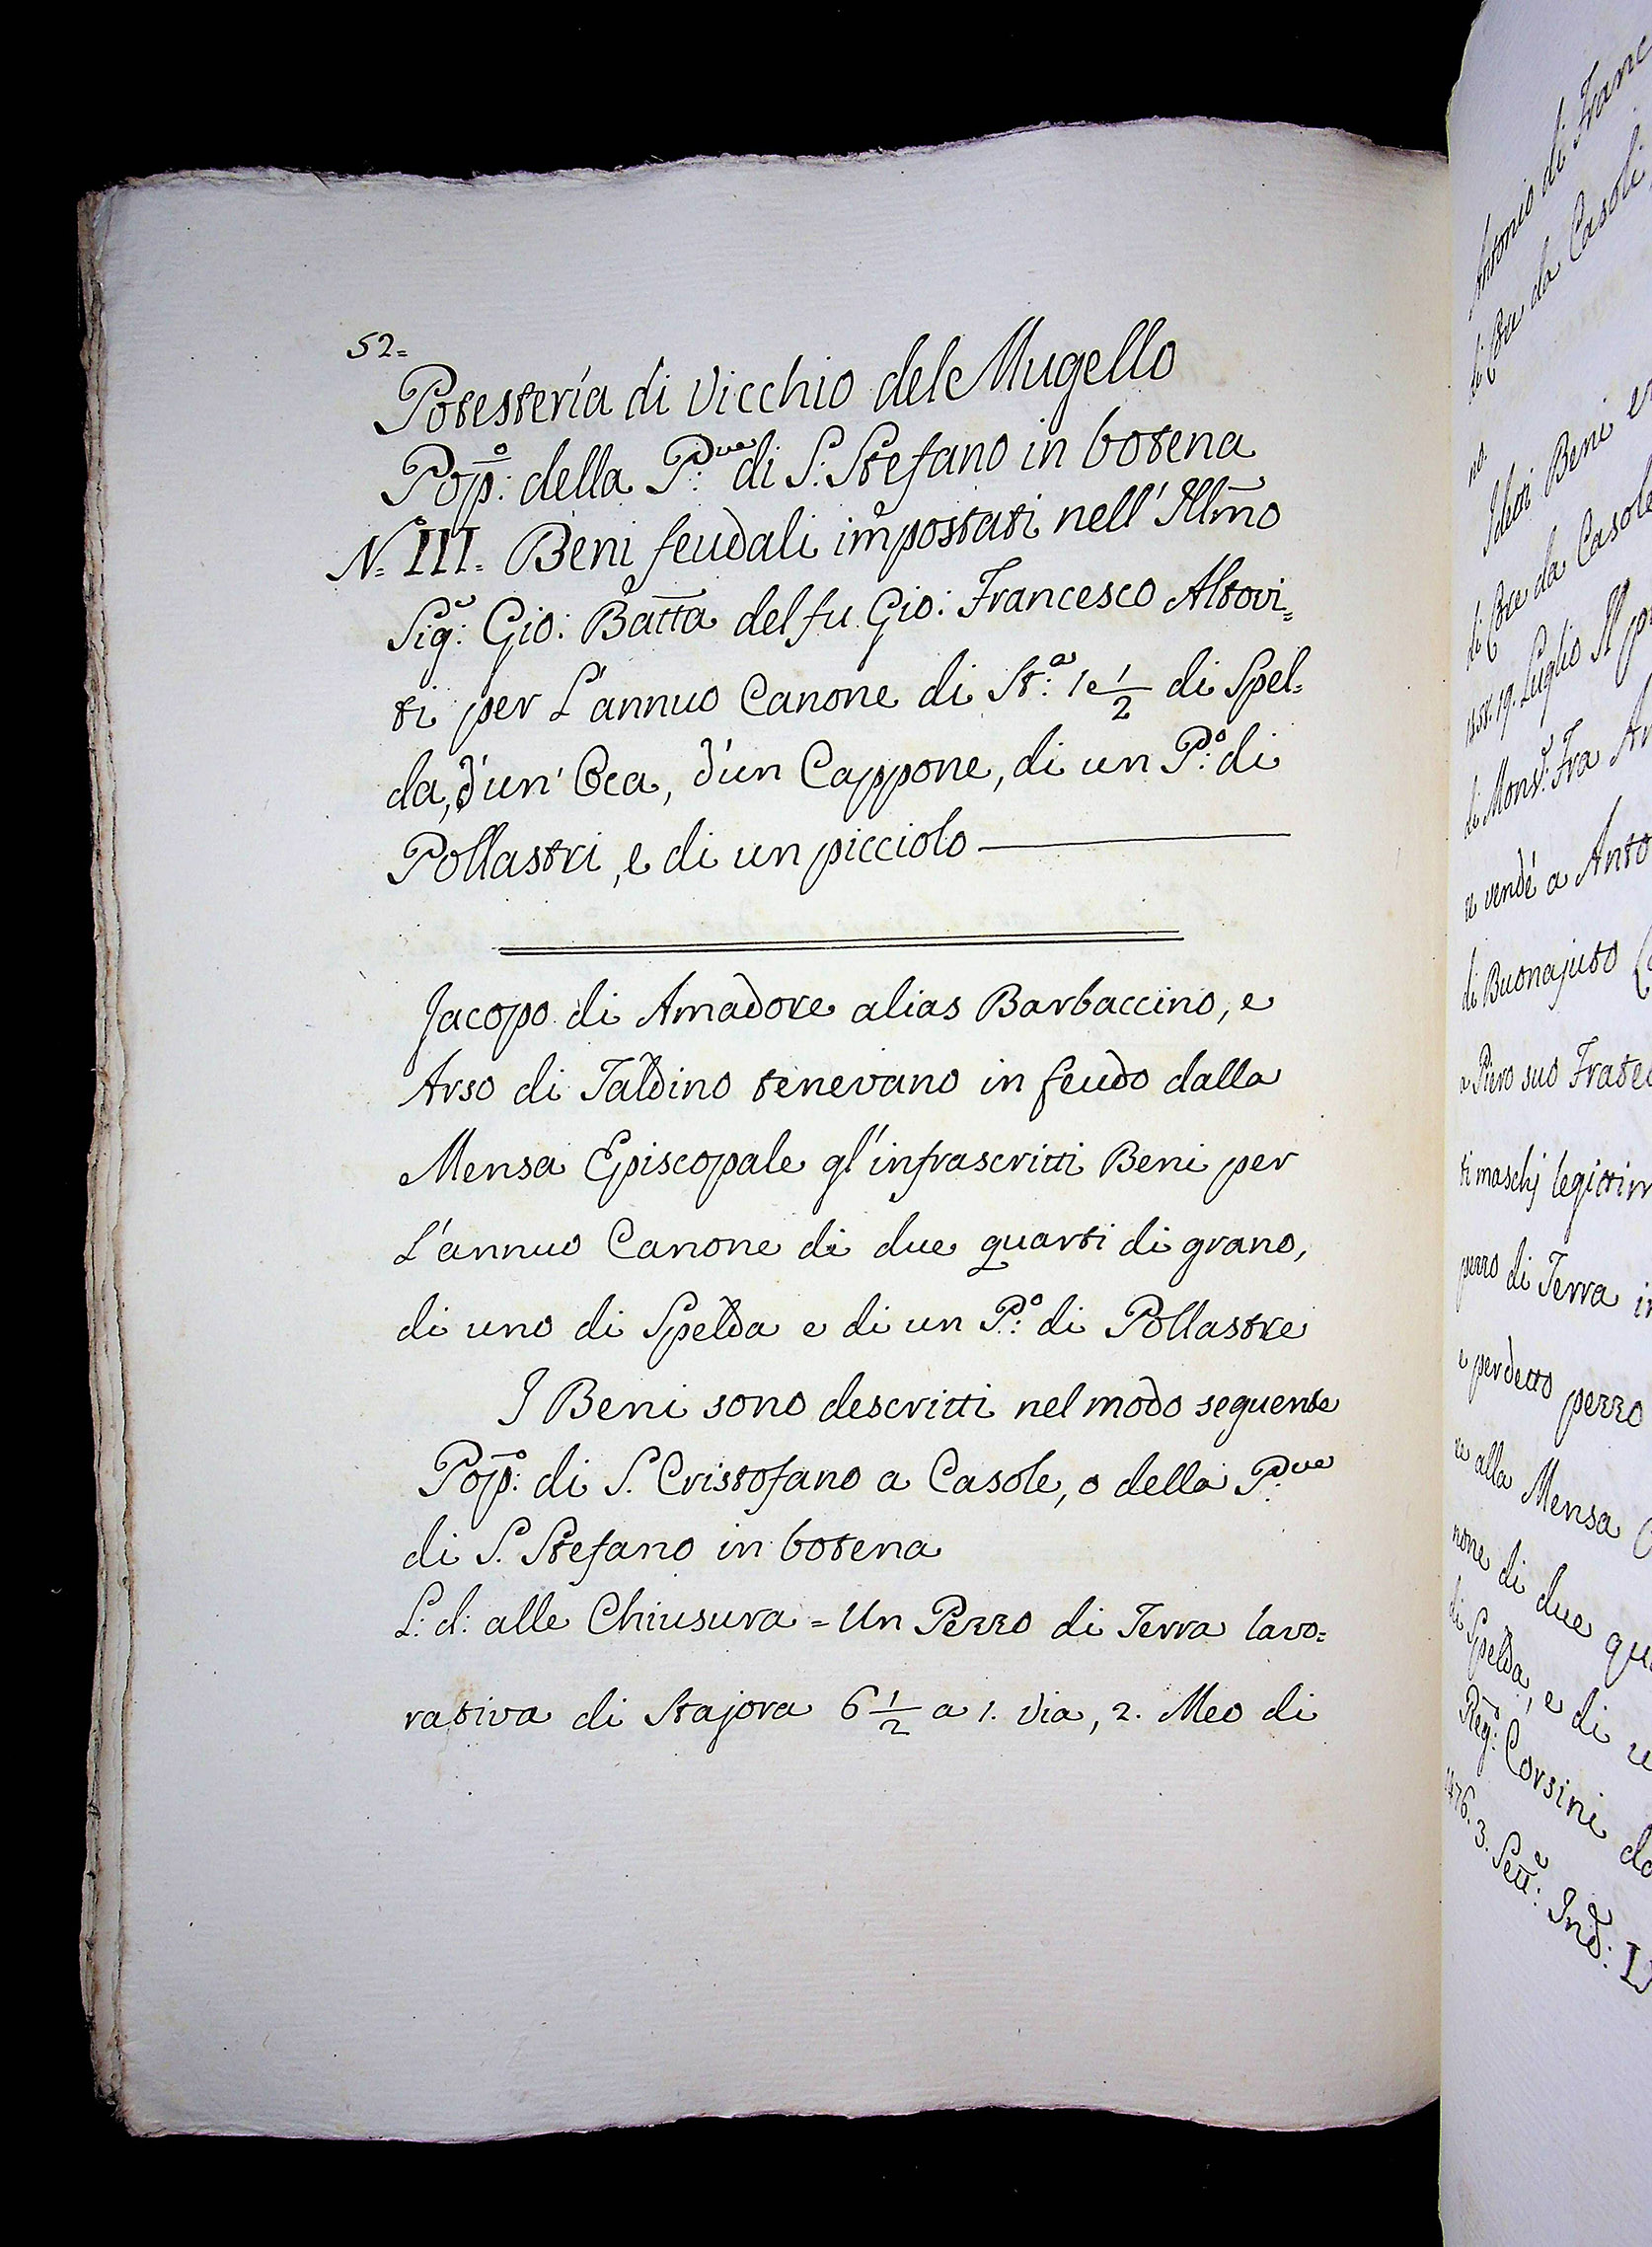 52=
Potesteria di Vicchio del Mugello
Pop:º della P:ve di S: Stefano in botena
N= III= Beni feudali impostati nell' Illmo
Sig:e Gio: Batta del fu Gio: Francesco Altovi=
ti per L'annuo Canone di St:a 1 e 1/2 di Spel=
da, d'un' Oca, d'un Cappone, di un P:º di
Pollastri, e di un picciolo
Jacopo di Amadore alias Barbaccino, e
Arso di Taldino tenevano in feudo dalla
Mensa Episcopale gl'infrascritti Beni per
L'annuo Canone di due quarti di grano,
di uno di Spelda e di un P:º di Pollastre
I Beni sono descritti nel modo seguente
Pop:º di S. Cristofano a Casole, o della P:ve
di S. Stefano in botena
L: d: alle Chiusura = Un Pezzo di Terra lavo=
rativa di Stajora 6 1/2 a 1. Via, 2. Meo di
Antonio di Franc
da Casoli
no.
Beni
da Casole
19. Luglio Il
di Mons:e Fra
e vendé a Anto
di Buonajuto
e Piero suo Fratel
ti maschj legittim
pezzo di Terra in
e perdetto pezzo
re alla Mensa
none di due qu
di Spelda, e di u
Reg:o Corsini
1476. 3. Sett:e Ind:e